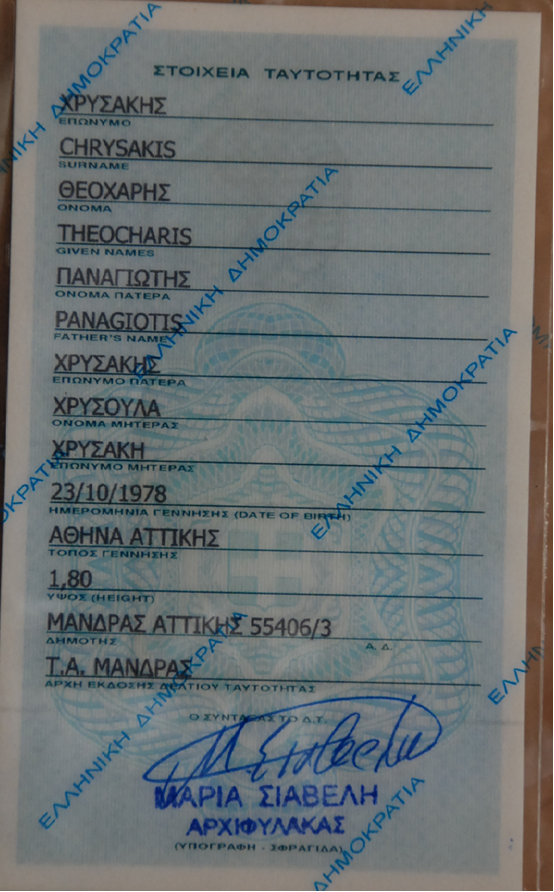 ΣΤΟΙΧΕΙΑ ΤΑΥΤΟΤΗΤΑΣ
ΧΡΥΣΑΚΗΣ
ΕΠΩΝΥΜΟ
CHRYSAKIS
SURNAME
ΘΕΟΧΑΡΗΣ
ΟΝΟΜΑ
THEOCHARIS
GIVEN NAMES
ΠΑΝΑΓΙΩΤΗΣ
ΟΝΟΜΑ ΠΑΤΕΡΑ
PANAGIOTIS
FATHER'S NAME
ΧΡΥΣΑΚΗΣ
ΕΠΩΝΥΜΟ ΠΑΤΕΡΑ
ΧΡΥΣΟΥΛΑ
ΟΝΟΜΑ ΜΗΤΕΡΑΣ
ΧΡΥΣΑΚΗ
ΕΠΩΝΥΜΟ ΜΗΤΕΡΑΣ
23/10/1978
ΗΜΕΡΟΜΗΝΙΑ ΓΕΝΝΗΣΗΣ (DATE OF BIRTH)
ΑΘΗΝΑ ΑΤΤΙΚΗΣ
ΤΟΠΟΣ ΓΕΝΝΗΣΗΣ
1,80
ΥΨΟΣ (HEIGHT)
ΜΑΝΔΡΑΣ ΑΤΤΙΚΗΣ 55406/3
ΔΗΜΟΤΗΣ Α.Δ.
Τ.Α. ΜΑΝΔΡΑΣ
ΑΡΧΗ ΕΚΔΟΣΗΣ ΔΕΛΤΙΟΥ ΤΑΥΤΟΤΗΤΑΣ
Ο ΣΥΝΤΑΞΑΣ ΤΟ Δ.Τ.
ΜΑΡΙΑ ΣΙΑΒΕΛΗ
ΑΡΧΙΦΥΛΑΚΑΣ
(ΥΠΟΓΡΑΦΗ - ΣΦΡΑΓΙΔΑ)
ΕΛΛΗΝΙΚΗ ΔΗΜΟΚΡΑΤΙΑ
ΕΛΛΗΝΙΚΗ
ΕΛΛΗΝΙΚΗ ΔΗΜΟΚΡΑΤΙΑ
ΕΛΛΗΝΙΚΗ ΔΗΜΟΚΡΑΤΙΑ
ΕΛΛΗΝΙΚΗ ΔΗΜΟΚΡΑΤΙΑ
ΔΗΜΟΚΡΑΤΙΑ